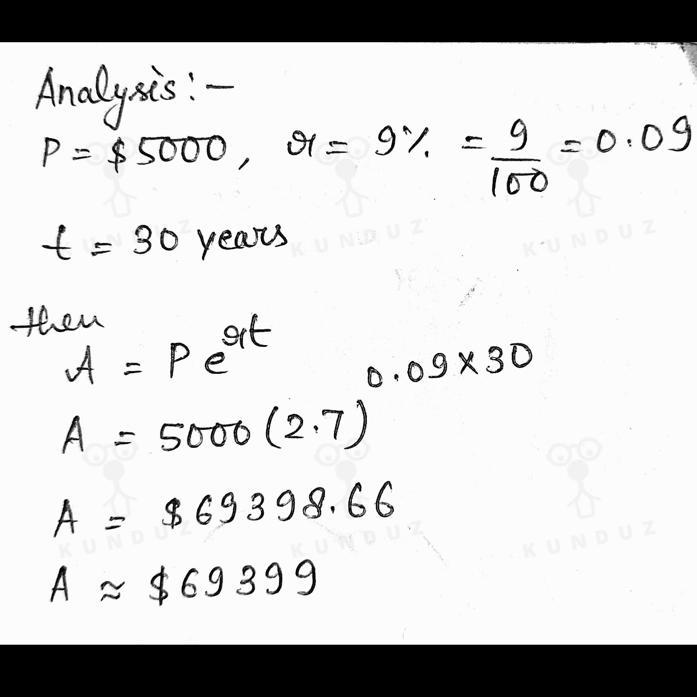 Analysis:-
P = $5000, r = 9% = 9/100 = 0.09
t = 30 years
then
A = Pe^rt
A = 5000(2.7)^0.09×30
A = $69398.66
A ≈ $69399
KUNDUZ KUNDUZ KUNDUZ
KUNDUZ KUNDUZ KUNDUZ